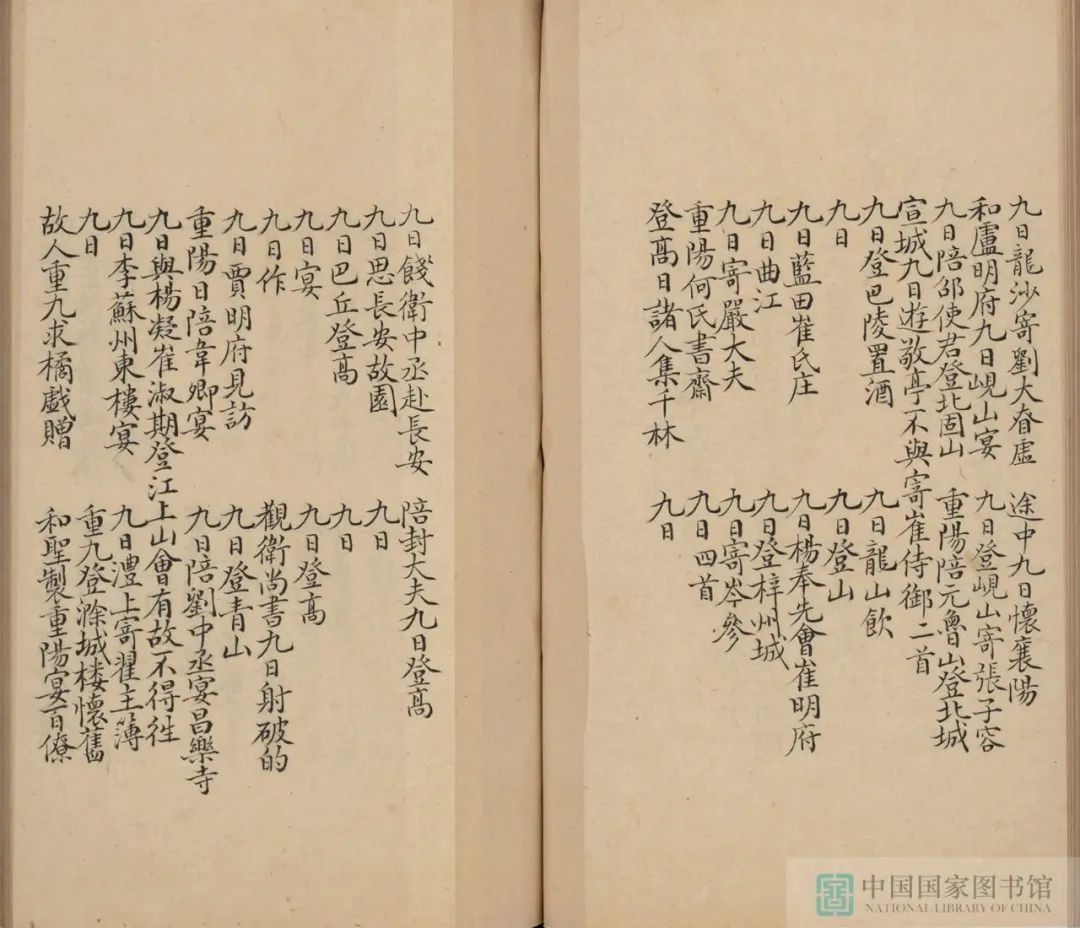 九日龍沙寄劉大眘虛 途中九日懷襄陽
和盧明府九日峴山宴 九日登峴山寄張子容
九日陪邵使君登北固山 重陽陪元魯山登北城
宣城九日遊敬亭不與寄崔侍御二首
九日登巴陵置酒 九日龍山飲
九日 九日登山
九日藍田崔氏庄 九日楊奉先會崔明府
九日曲江 九日登梓州城
九日寄嚴大夫 九日寄岑參
重陽何氏書齋 九日四首
登髙日諸人集千林 九日
九日餞衛中丞赴長安 陪封大夫九日登髙
九日思長安故園 九日
九日巴丘登髙 九日
九日宴 九日登髙
九日作 觀衛尚書九日射破的
九日賈明府見訪 九日登青山
重陽日陪韋卿宴 九日陪劉中丞宴昌樂寺
九日與楊凝崔淑期登江上山會有故不得徃
九日李蘇州東樓宴 九日澧上寄翟主簿
九日 重九登滁城楼懷舊
故人重九求橘戲贈 和聖製重陽宴百僚
中国国家图书馆
NATIONAL LIBRARY OF CHINA